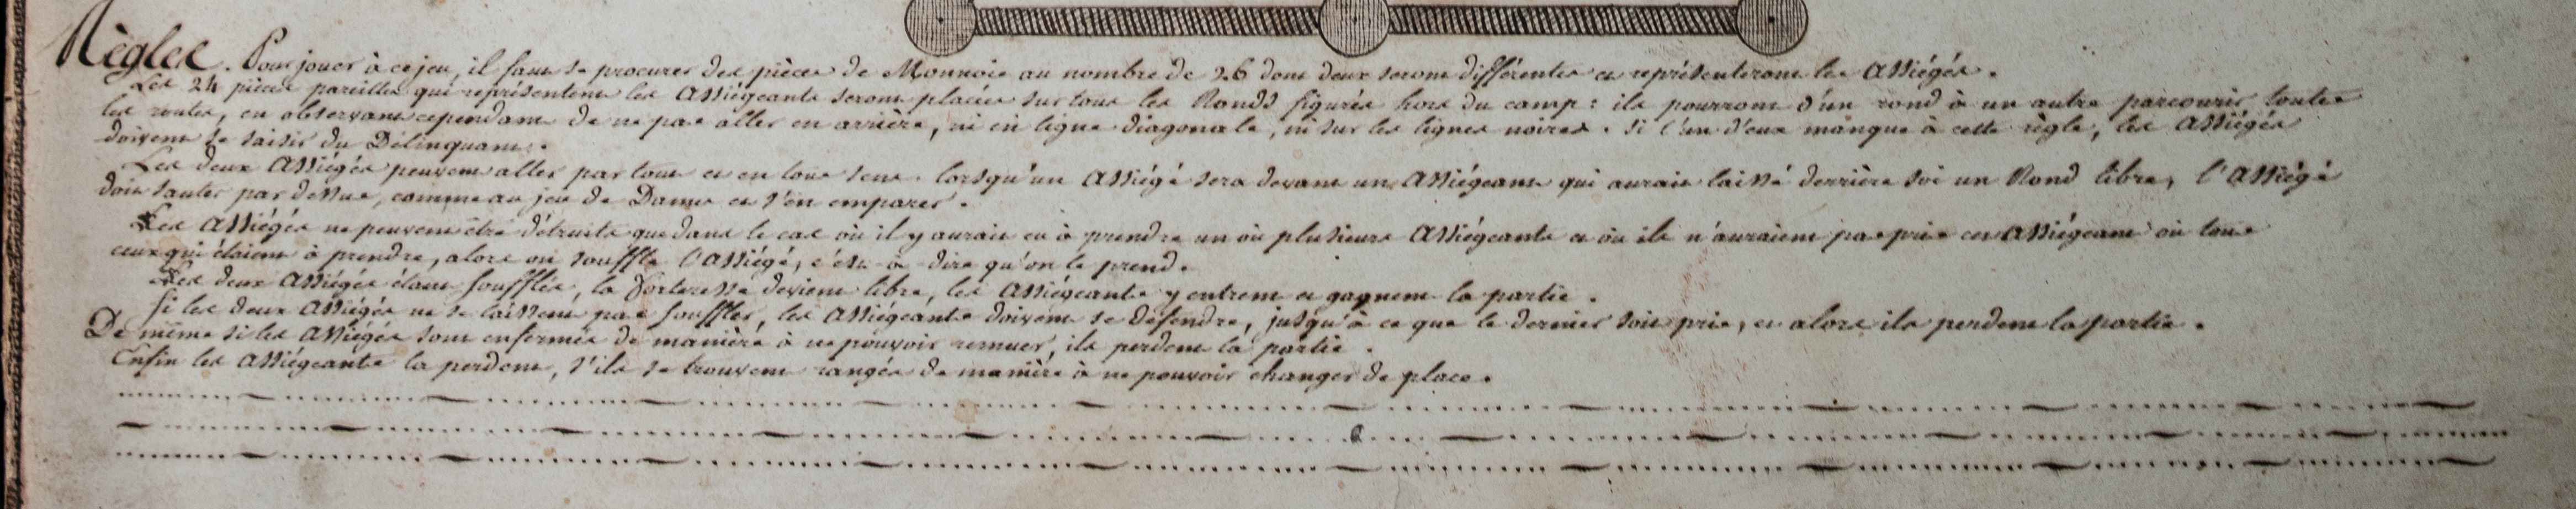 Règles. Pour jouer à ce jeu, il faut se procurer des pièces de Monnoie au nombre de 26 dont deux seront différentes et représenteront les Assiégés.
Les 24 pièces pareilles qui représentent les Assiégeants seront placées sur tous les Ronds figurés hors du camp : ils pourront d'un rond à un autre parcourir toutes
les routes, en observant cependant de ne pas aller en arrière, ni en ligne diagonale, ni sur les lignes noires. Si l'un d'eux manque à cette règle, les Assiégés
doivent se saisir du Délinquant.
Les deux Assiégés peuvent aller par tout et en tous sens. lorsqu'un Assiégé sera devant un Assiégeant qui aurait laissé derrière soi un Rond libre, l'Assiégé
doit sauter par dessus, comme au jeu de Dames et s'en emparer.
Les Assiégés ne peuvent être détruits que dans le cas où il y aurait eu à prendre un ou plusieurs Assiégeants et où ils n'auraient pas pris cet Assiégeant ou tous
ceux qui étaient à prendre, alors on souffle l'Assiégé, c'est-à-dire qu'on le prend.
Les deux Assiégés étant soufflés, la forteresse devient libre, les Assiégeants y entrent et gagnent la partie.
Si les deux Assiégés ne se laissent pas souffler, les Assiégeants doivent se défendre, jusqu'à ce que le dernier soit pris, et alors ils perdent la partie.
De même si les Assiégés sont enfermés de manière à ne pouvoir remuer, ils perdent la partie.
Enfin les Assiégeants la perdent, s'ils se trouvent rangés de manière à ne pouvoir changer de place.